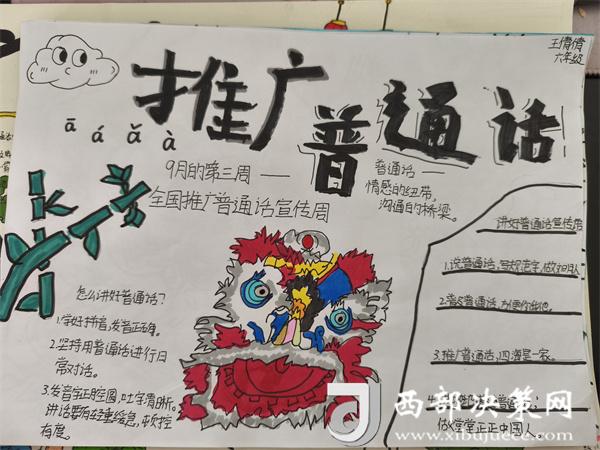 王倩倩
六年级
推广普通话
ā á ǎ à
9月的第三周——
全国推广普通话宣传周
普通话——
情感的纽带,
沟通的桥梁。
怎么讲好普通话?
1.学好拼音,发音正确。
2.坚持用普通话进行日
常对话。
3.发音字正腔圆,吐字清晰。
讲话要有轻重缓急,
有度。
讲好普通话宣传
1.说普通话,写规范字,做
2.普及普通话,方便你我他。
3.推广普通话,四海是一家。
做堂堂正正中国人。
西部决策网
www.xibujuece.com